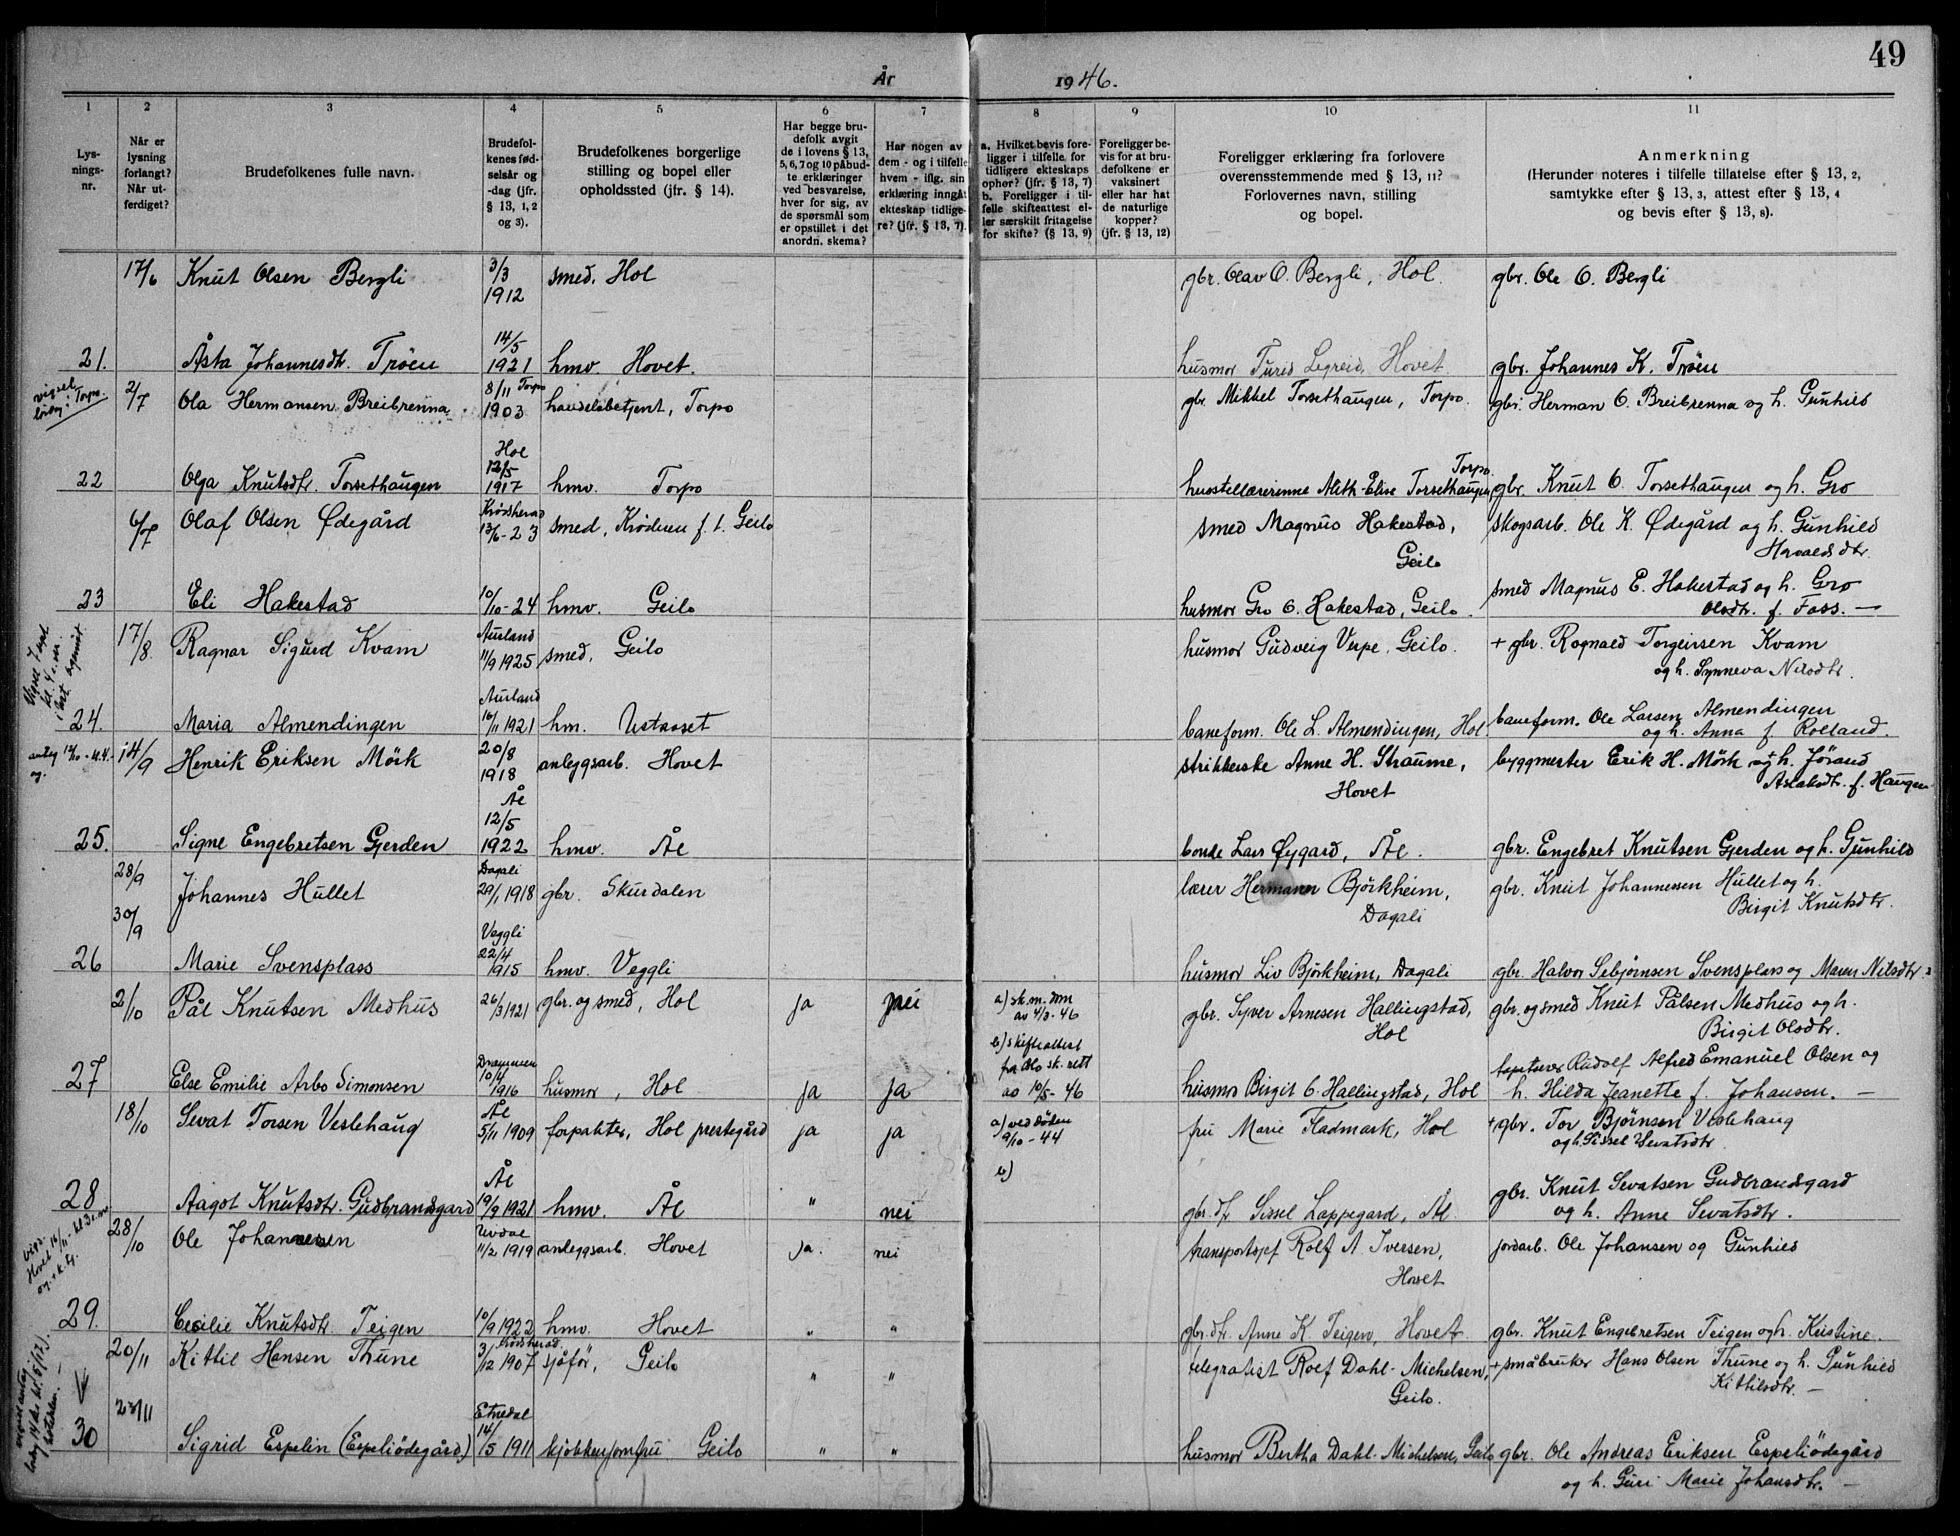 49
År 1946.
1 2 3 4 5 6 7 8 9 10 11
Lys-
nings-
nr.
Når er
lysning
forlangt?
Når ut-
ferdiget?
Brudefolkenes fulle navn.
Brudefol-
kenes fød-
selsår og
-dag (jfr.
§ 13, 1, 2
og 3).
Brudefolkenes borgerlige
stilling og bopel eller
opholdssted (jfr. § 14).
Har begge bru-
defolk avgit
de i lovens § 13,
5, 6, 7 og 10 påbud-
te erklæringer
ved besvarelse,
hver for sig, av
de spørsmål som
er opstillet i det
anordn. skema?
Har nogen av
dem - og i tilfelle
hvem - iflg. sin
erklæring inngåt
ekteskap tidlige-
re? (jfr. § 13, 7).
a. Hvilket bevis fore-
ligger i tilfelle for
tidligere ekteskaps
ophør? (jfr. § 13, 7)
b. Foreligger i til-
felle skifteattest el-
ler særskilt fritagelse
for skifte? (§ 13, 9)
Foreligger be-
vis for at bru-
defolkene er
vaksinert
eller har hat
de naturlige
kopper?
(jfr. § 13, 12)
Foreligger erklæring fra forlovere
overensstemmende med § 13, 11?
Forlovernes navn, stilling
og bopel.
Anmerkning
(Herunder noteres i tilfelle tillatelse efter § 13, 2,
samtykke efter § 13, 3, attest efter § 13, 4
og bevis efter § 13, 8).
17/6 Knut Olsen Bergli 3/3 1912 smed, Hol gbr. Olav O. Bergli, Hol. gbr. Ole O. Bergli
21. Åsta Johannesdtr. Trøen 14/5 1921 hmv Hovet. husmor Turid Legreid, Hovet gbr. Johannes K. Trøen
vigsel Torpo.
2/7 Ola Hermansen Breibrenna 8/11 Torpo 1903 handelsbetjent, Torpo gbr. Mikkel Torsethaugen, Torpo. gbr. Herman O. Breibrenna og h. Gunhild
22 Olga Knutsdtr. Torsethaugen Hol 12/5 1917 hmv. Torpo husstellærerinne Elise Torsethaugen Torpo. gbr. Knut O. Torsethaugen og h. Gro
6/7 Olaf Olsen Ødegård Krødsherad 13/6-23 smed, Krøderen f. t. Geilo smed Magnus Hakestad, Geilo skogsarb. Ole K. Ødegård og h. Gunhild
Havaldsdtr.
23 Eli Hakestad 10/10-24 hmv. Geilo husmor Gro O. Hakestad, Geilo. smed Magnus E. Hakestad og h. Gro
Olsdtr. f. Foss. —
17/8. Ragnar Sigurd Kvam Aurland 11/9 1925 smed, Geilo husmor Gudveig Verpe, Geilo. + gbr. Rognald Torgeirsen Kvam
og h. Synneva Nilsdtr.
24. Maria Almendingen Aurland 16/11 1921 hm. Ustaoset baneform. Ole L. Almendingen, Hol. baneform. Ole Larsen Almendingen
og h. Anna f. Rolland.
14/9 Henrik Eriksen Mörk 20/8 1918 anleggsarb. Hovet strikkerske Anne H. Straume, Hovet byggmester Erik H. Mörk og h. Jørand
Aslaksdtr. f. Haugen
25. Signe Engebretsen Gjerden Ål 12/5 1922 hmv. Ål bonde Lars Øygard, Ål. gbr. Engebret Knutsen Gjerden og h. Gunhild
28/9 Johannes Hullet Dagali 29/1 1918 gbr. Skurdalen lærer Hermann Björkheim, Dagali gbr. Knut Johannessen Hullet og h.
30/9 Birgit Knutsdtr.
26 Marie Svensplass Veggli 22/4 1915 hmv. Veggli husmor Liv Björkheim, Dagali gbr. Halvor Sebjørnsen Svensplass og Maren Nilsdtr.
2/10 Pål Knutsen Medhus 26/3 1921 gbr. og smed, Hol ja nei a) sk.m. dom
av 4/3-46 gbr. Syver Arnesen Hallingstad, Hol gbr. og smed Knut Pålsen Medhus og h.
Birgit Olsdtr.
27 Else Emilie Arbo Simonsen Drammen 10/4 1916 husmor, Hol ja ja b) skifteattest
fra Oslo sk. rett
av 10/5-46 husmor Birgit O. Hallingstad, Hol tapetserer Rudolf Alfred Emanuel Olsen og
h. Hilda Jeanette f. Johansen. —
18/10 Sevat Torsen Veslehaug Ål 5/11 1909 forpakter, Hol prestegård ja ja a) ved døden
9/10-44 fru Marie Fladmark, Hol + gbr. Tor Bjørnsen Veslehaug
og h. Sissel Sevatsdtr
b)
28 Aagot Knutsdtr. Gudbrandsgard Ål 9/9 1921 hmv. Ål " nei gbr.dtr Sissel Lappegard, Ål gbr. Knut Sevatsen Gudbrandsgard
og h. Anne Sevatsdtr.
28/10 Ole Johannesen Uvdal 11/2 1919 anleggsarb. Hovet ja. nei transportsjef Rolf A. Iversen, Hovet jordarb. Ole Johansen og Gunhild
29. Cecilie Knutsdtr. Teigen 10/9 1922 hmv. Hovet " " gbr.dtr. Anne K. Teigen, Hovet gbr. Knut Engebretsen Teigen og h. Kristine.
20/11 Kittil Hansen Thune Krødsherad 3/12 1907 sjåför, Geilo " " telegrafist Rolf Dahl-Michelsen, Geilo. + småbruker Hans Olsen Thune og h. Gunhild
Kittilsdtr. —
23/11
30 Sigrid Espelin (Espeliödegård) Etnedal 14/5 1911 kjøkkenjomfru Geilo " " husmor Bertha Dahl-Michelsen, Geilo gbr. Ole Andreas Eriksen Espeliödegård
og h. Guri Marie Johansdtr. —